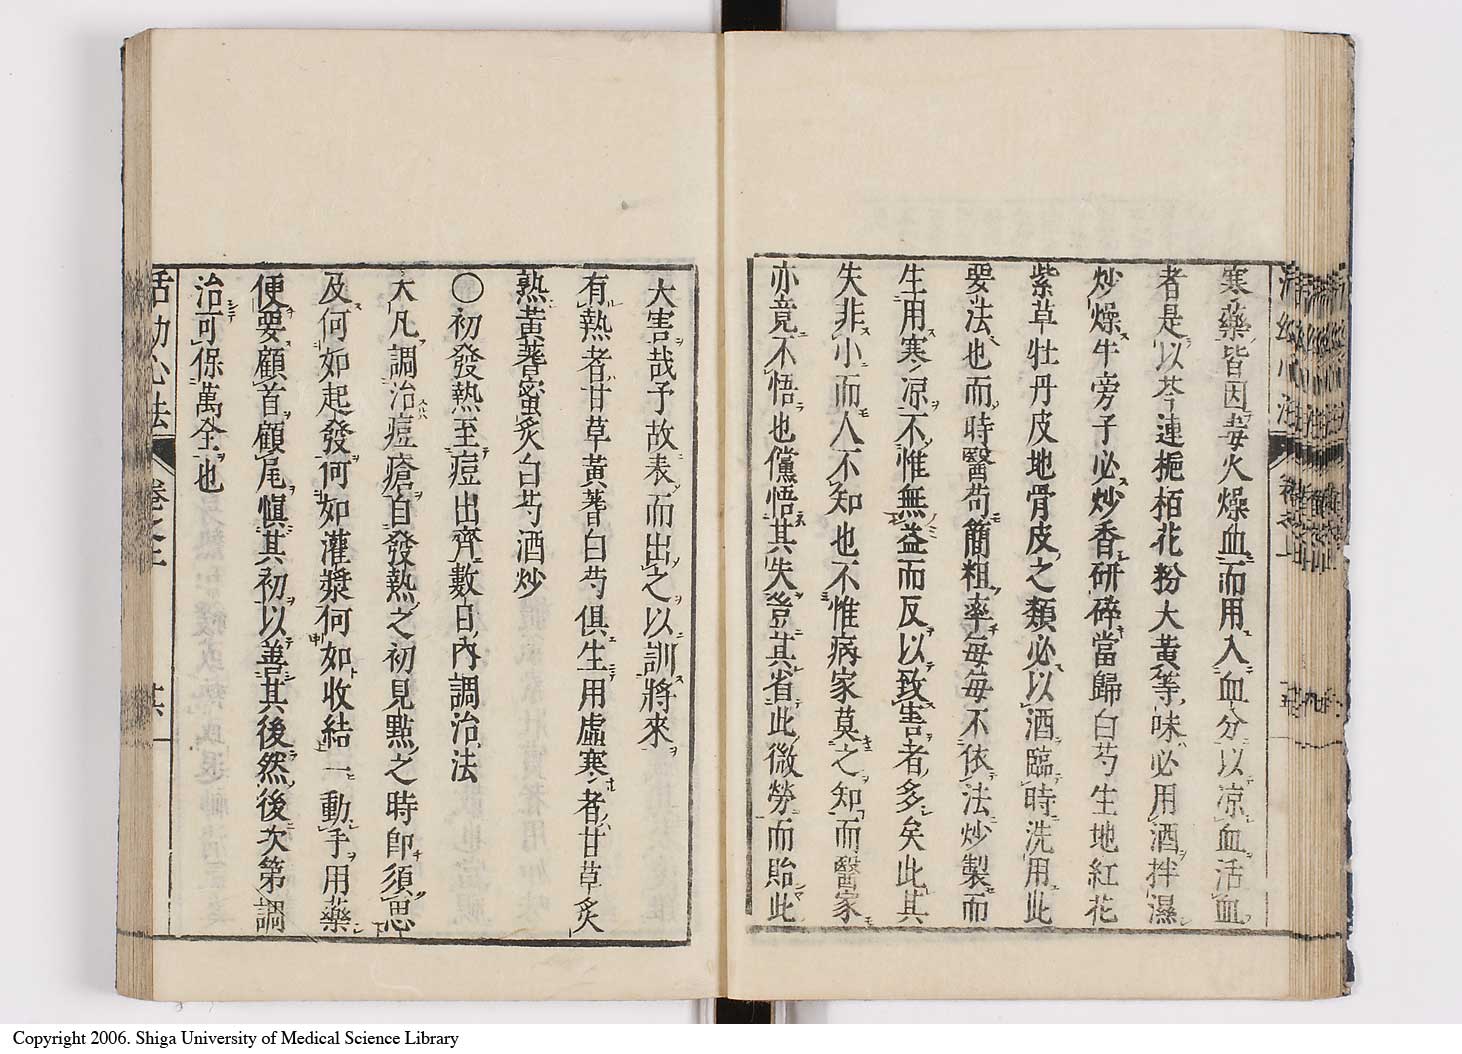 寒藥皆因毒火燥血而用入血分以凉血活血
者是以芩連梔栢花粉大黃等味必用酒拌濕
炒燥牛旁子必炒香研碎當歸白芍生地紅花
紫草牡丹皮地骨皮之類必以酒臨時洗用此
要法也而時醫苟簡粗率每每不依法炒製而
生用寒凉不惟無益而反以致害者多矣此其
失非小而人不知也不惟病家莫之知而醫家
亦竟不悟也儻悟其失豈其省此微勞而貽此
大害哉予故表而出之以訓將來
有熱者甘草黃蓍白芍俱生用虛寒者甘草炙
熟黃蓍蜜炙白芍酒炒
〇初發熱至痘出齊數日內調治法
大凡調治痘瘡自發熱之初見點之時卽須思
及何如起發何如灌漿何如收結一動手用藥
便要顧首顧尾愼其初以善其後然後次第調
治可保萬全也
活幼心法 卷之上
Copyright 2006. Shiga University of Medical Science Library